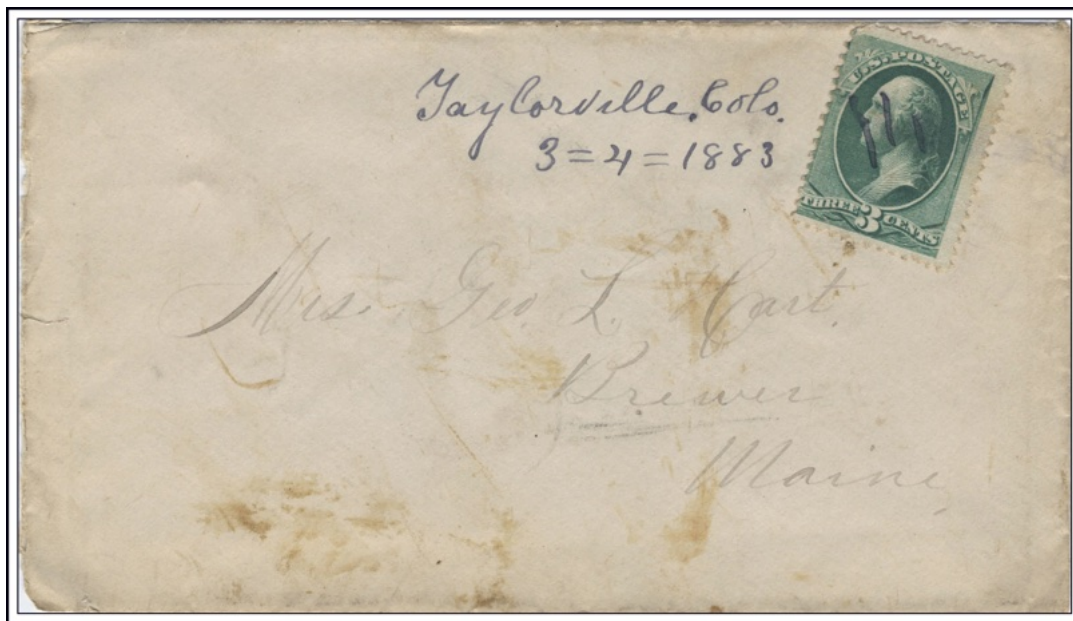 Taylorville, Colo.
3=4=1883
U.S. POSTAGE
THREE 3 CENTS
Mrs. Geo. L. Cart.
Brewer
Maine